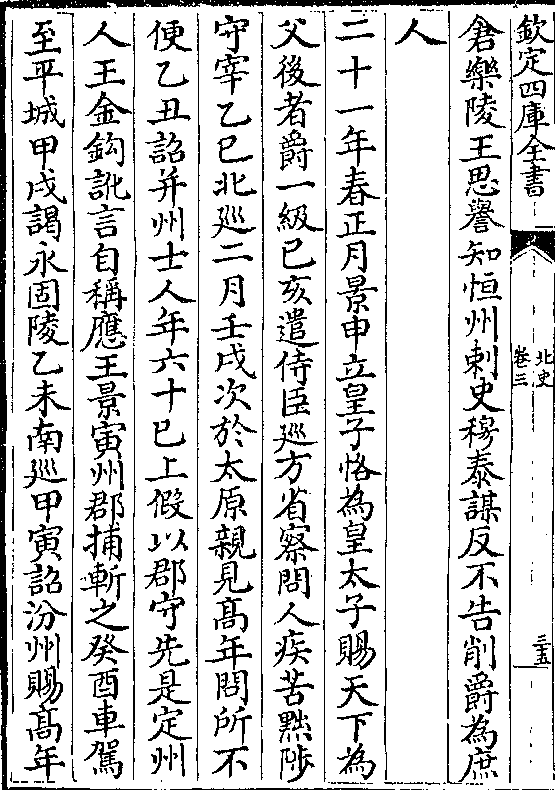 欽定四庫全書
北史
卷三
三五
窘樂陵王思譽知恒州刺史穆泰謀反不告削爵為庶
人
二十一年春正月景申立皇子恪為皇太子賜天下為
父後者爵一級已亥遣侍臣廵方省察問人疾苦黜陟
守宰乙巳北廵二月壬戌次於太原親見髙年問所不
便乙丑詔并州士人年六十已上假以郡守先是定州
人王金鈎訛言自稱應王景寅州郡捕斬之癸酉車駕
至平城甲戌謁永固陵乙未南廵甲寅詔汾州賜髙年